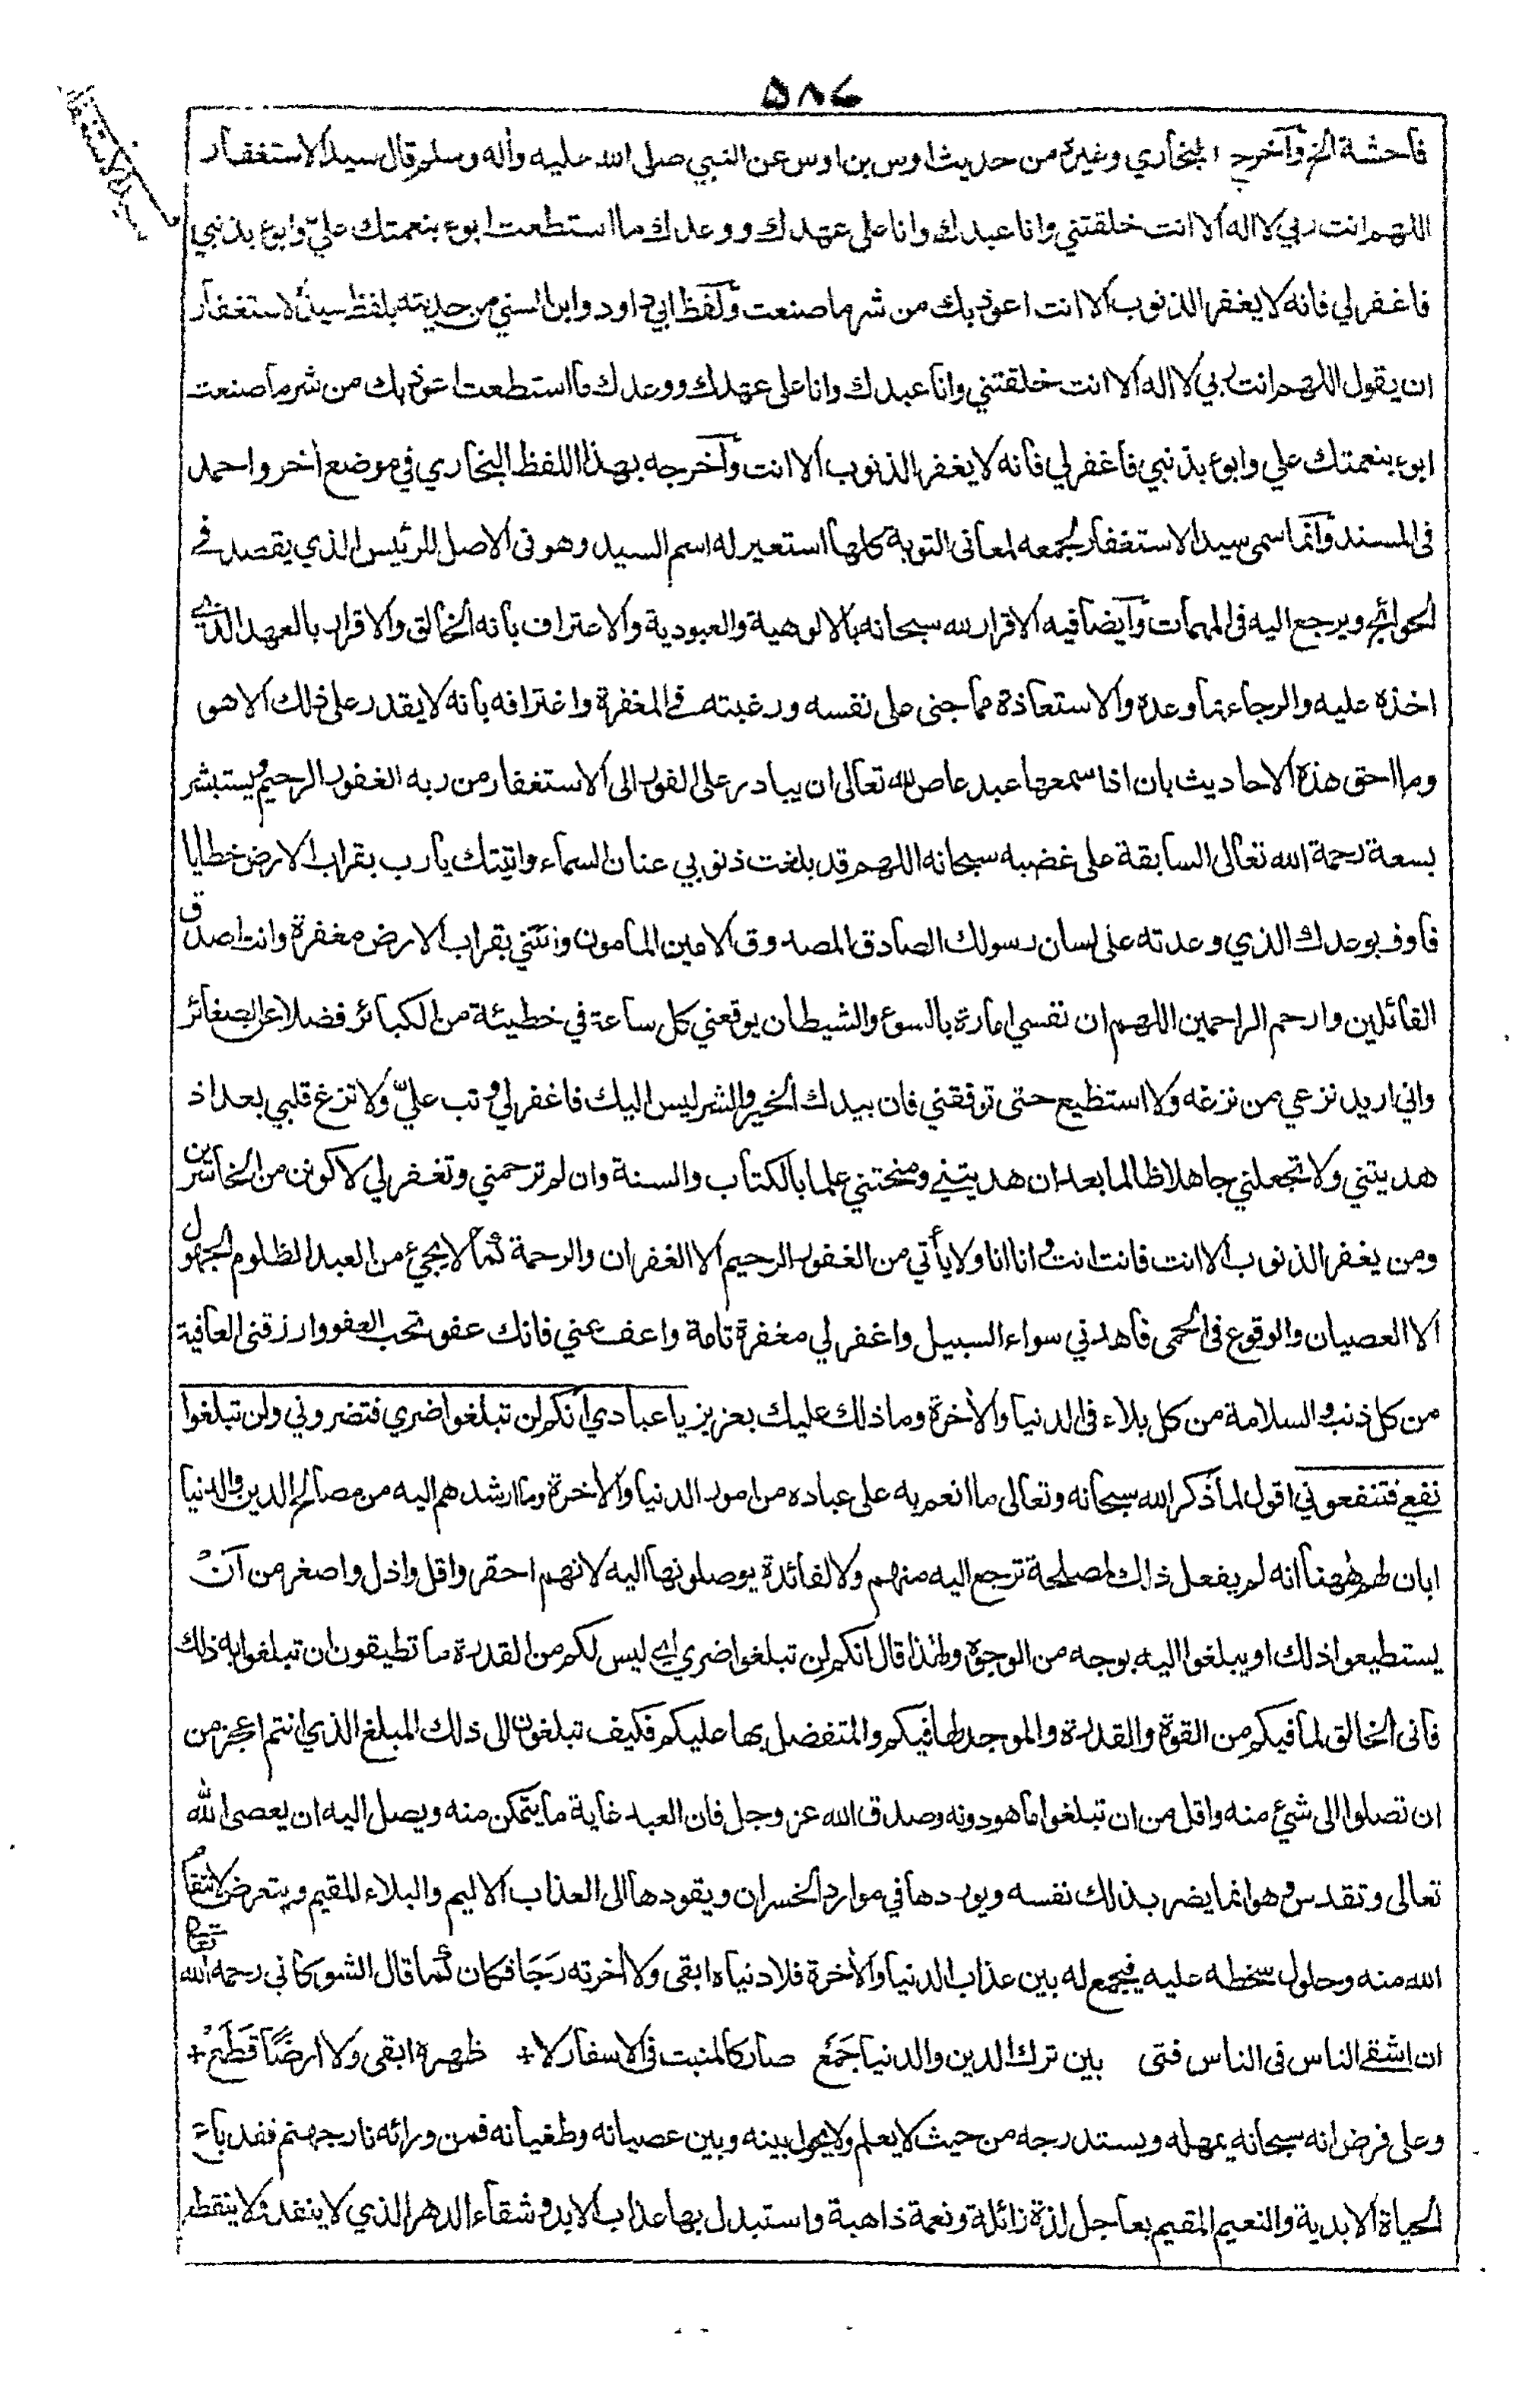 ٥٨٦
سيد الاستغفار
فاحشة الخ وأخرج البخاري وغيره من حديث اوس بن اوس عن النبي صلى الله عليه وأله وسلم قال سيد الاستغفار
اللهم انت ربي لا اله الا انت خلقتني وانا عبدك وانا على عهدك ووعدك ما استطعت ابوء بنعمتك عليّ وابوء بذنبي
فاغفر لي فانه لا يغفر الذنوب الا انت اعوذ بك من شر ما صنعت ولفظ ابي داود وابن السني من حديثه بلفظ سيد الاستغفار
ان يقول اللهم انت ربي لا اله الا انت خلقتني وانا عبدك وانا على عهدك ووعدك ما استطعت اعوذ بك من شر ما صنعت
ابوء بنعمتك علي وابوء بذنبي فاغفر لي فانه لا يغفر الذنوب الا انت وأخرجه بهذا اللفظ البخاري في موضع أخر واحمد
في المسند وانما سمى سيد الاستغفار لجمعه لمعانى التوبة كلها استعير له اسم السيد وهو في الاصل للرئيس الذي يقصد في
الحوائج ويرجع اليه في المهمات وايضا فيه الاقرار لله سبحانه بالالوهية والعبودية والاعتراف بانه الخالق والاقرار بالعهد الذي
اخذه عليه والرجاء بما وعده والاستعاذة مما جنى على نفسه ورغبته في المغفرة واعترافه بانه لا يقدر على ذلك الا هو
وما احق هذه الاحاديث بان اذا سمعها عبد عاص لله تعالى ان يبادر على الفور الى الاستغفار من ربه الغفور الرحيم ويستبشر
بسعة رحمة الله تعالى السابقة على غضبه سبحانه اللهم قد بلغت ذنوبي عنان السماء واتيتك يارب بقراب الارض خطايا
فاوف بوعدك الذي وعدته على لسان رسولك الصادق المصدوق الامين المامون وائتني بقراب الارض مغفرة وانت اصدق
القائلين وارحم الراحمين اللهم ان نفسي امارة بالسوء والشيطان يوقعني كل ساعة في خطيئة من الكبائر فضلا عن الصغائر
واني اريد نزعي من نزغه ولا استطيع حتى توفقني فان بيدك الخير والشر ليس اليك فاغفر لي وتب عليّ ولا تزغ قلبي بعد اذ
هديتني ولا تجعلني جاهلا ظالما بعد ان هديتني ومنحتني علما بالكتاب والسنة وان لم ترحمني وتغفر لي لاكونن من الخاسرين
ومن يغفر الذنوب الا انت فانت انت وانا انا ولا يأتي من الغفور الرحيم الا الغفران والرحمة كما لا يجيئ من العبد الظلوم الجهول
الا العصيان والوقوع في الحمى فاهدني سواء السبيل واغفر لي مغفرة تامة واعف عني فانك عفو تحب العفو وارزقنى العافية
من كل ذنب والسلامة من كل بلاء في الدنيا والأخرة وما ذلك عليك بعزيز يا عبادي انكم لن تبلغوا ضري فتضروني ولن تبلغوا
نفعي فتنفعوني اقول لما ذكر الله سبحانه وتعالى ما انعم به على عباده من امور الدنيا والأخرة وما ارشدهم اليه من مصالح الدين والدنيا
ابان لهم ههنا انه لم يفعل ذلك لمصلحة ترجع اليه منهم ولا لفائدة يوصلونها اليه لانهم احقر واقل واذل واصغر من أنْ
يستطيعوا ذلك او يبلغوا اليه بوجه من الوجوه ولهذا قال انكم لن تبلغوا ضري اي ليس لكم من القدرة ما تطيقون ان تبلغوا به ذلك
فانى الخالق لما فيكم من القوة والقدرة والموجد لها فيكم والمتفضل بها عليكم فكيف تبلغون الى ذلك المبلغ الذي انتم اعجز من
ان تصلوا الى شيئ منه واقل من ان تبلغوا ما هو دونه وصدق الله عز وجل فان العبد غاية ما يتمكن منه ويصل اليه ان يعصى الله
تعالى وتقدس وهو انما يضر بذلك نفسه ويوردها في موارد الخسران ويقودها الى العذاب الاليم والبلاء المقيم ويتعرض لانتقام
الله منه وحلول سخطه عليه فيجمع له بين عذاب الدنيا والأخرة فلا دنياه ابقى ولا أخرته رَجَا فكان كما قال الشوكاني رحمه الله تعالى
ان اشقى الناس في الناس فتى بين ترك الدين والدنيا جَمَع صار كالمنبت في الاسفار لا + ظهره ابقى ولا ارضًا قَطَع +
وعلى فرض انه سبحانه يمهله ويستدرجه من حيث لا يعلم ولا يحول بينه وبين عصيانه وطغيانه فمن ورائه نار جهنم فقد باع
الحياة الابدية والنعيم المقيم بعاجل لذة زائلة ونعمة ذاهبة واستبدل بها عذاب الابد وشقاء الدهر الذي لا ينفد ولا ينقطع